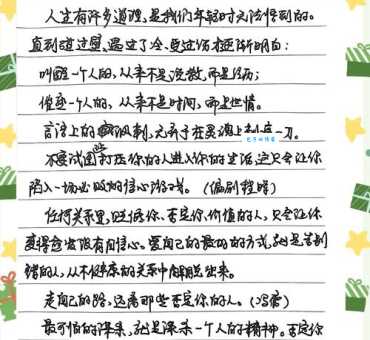 人生有许多道理,是我们年轻时无法悟到的。
直到碰过壁、遇过冷、受过伤才恍然明白:
叫醒一个人的,从来不是说教,而是经历;
催老一个人的,从来不是时间,而是世情。
言语上的讽刺,无异于在灵魂上刺一刀。
不要试图打压你的人进入你的生活,这只会让你
陷入一场必败的信心游戏。(偏剧程时)
任何关系里,贬低你、否定你价值的人,只会让你
变得愈发没有自信心。爱自己的最好的方式,就是告别
错的人,从不健康的关系中解脱出来。
走自己的路,远离那些否定你的人。
最可怕的谋杀,就是谋杀一个人的精神。否定你